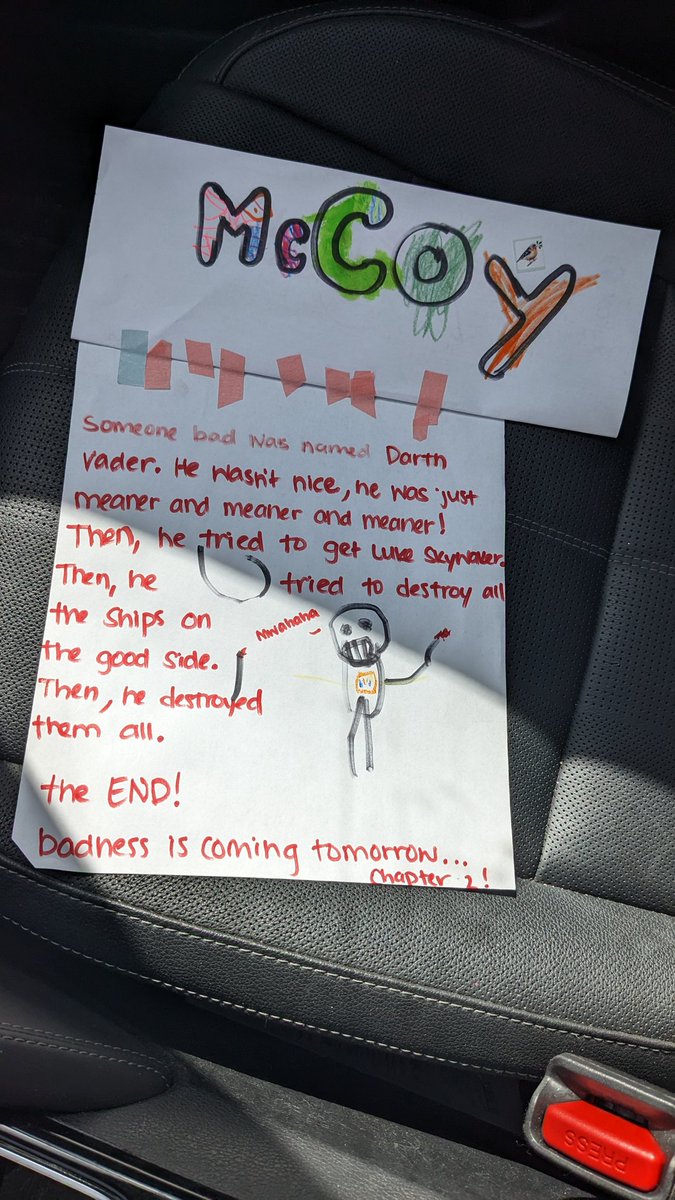 McCoy
Someone bad was named Darth
Vader. He wasn't nice, he was just
meaner and meaner and meaner!
Then, he tried to get Luke Skywalker.
Then, he tried to destroy all
the ships on
the good side.
Then, he destroyed
them all.
Mwahaha
the END!
badness is coming tomorrow...
Chapter 2!
PRESS